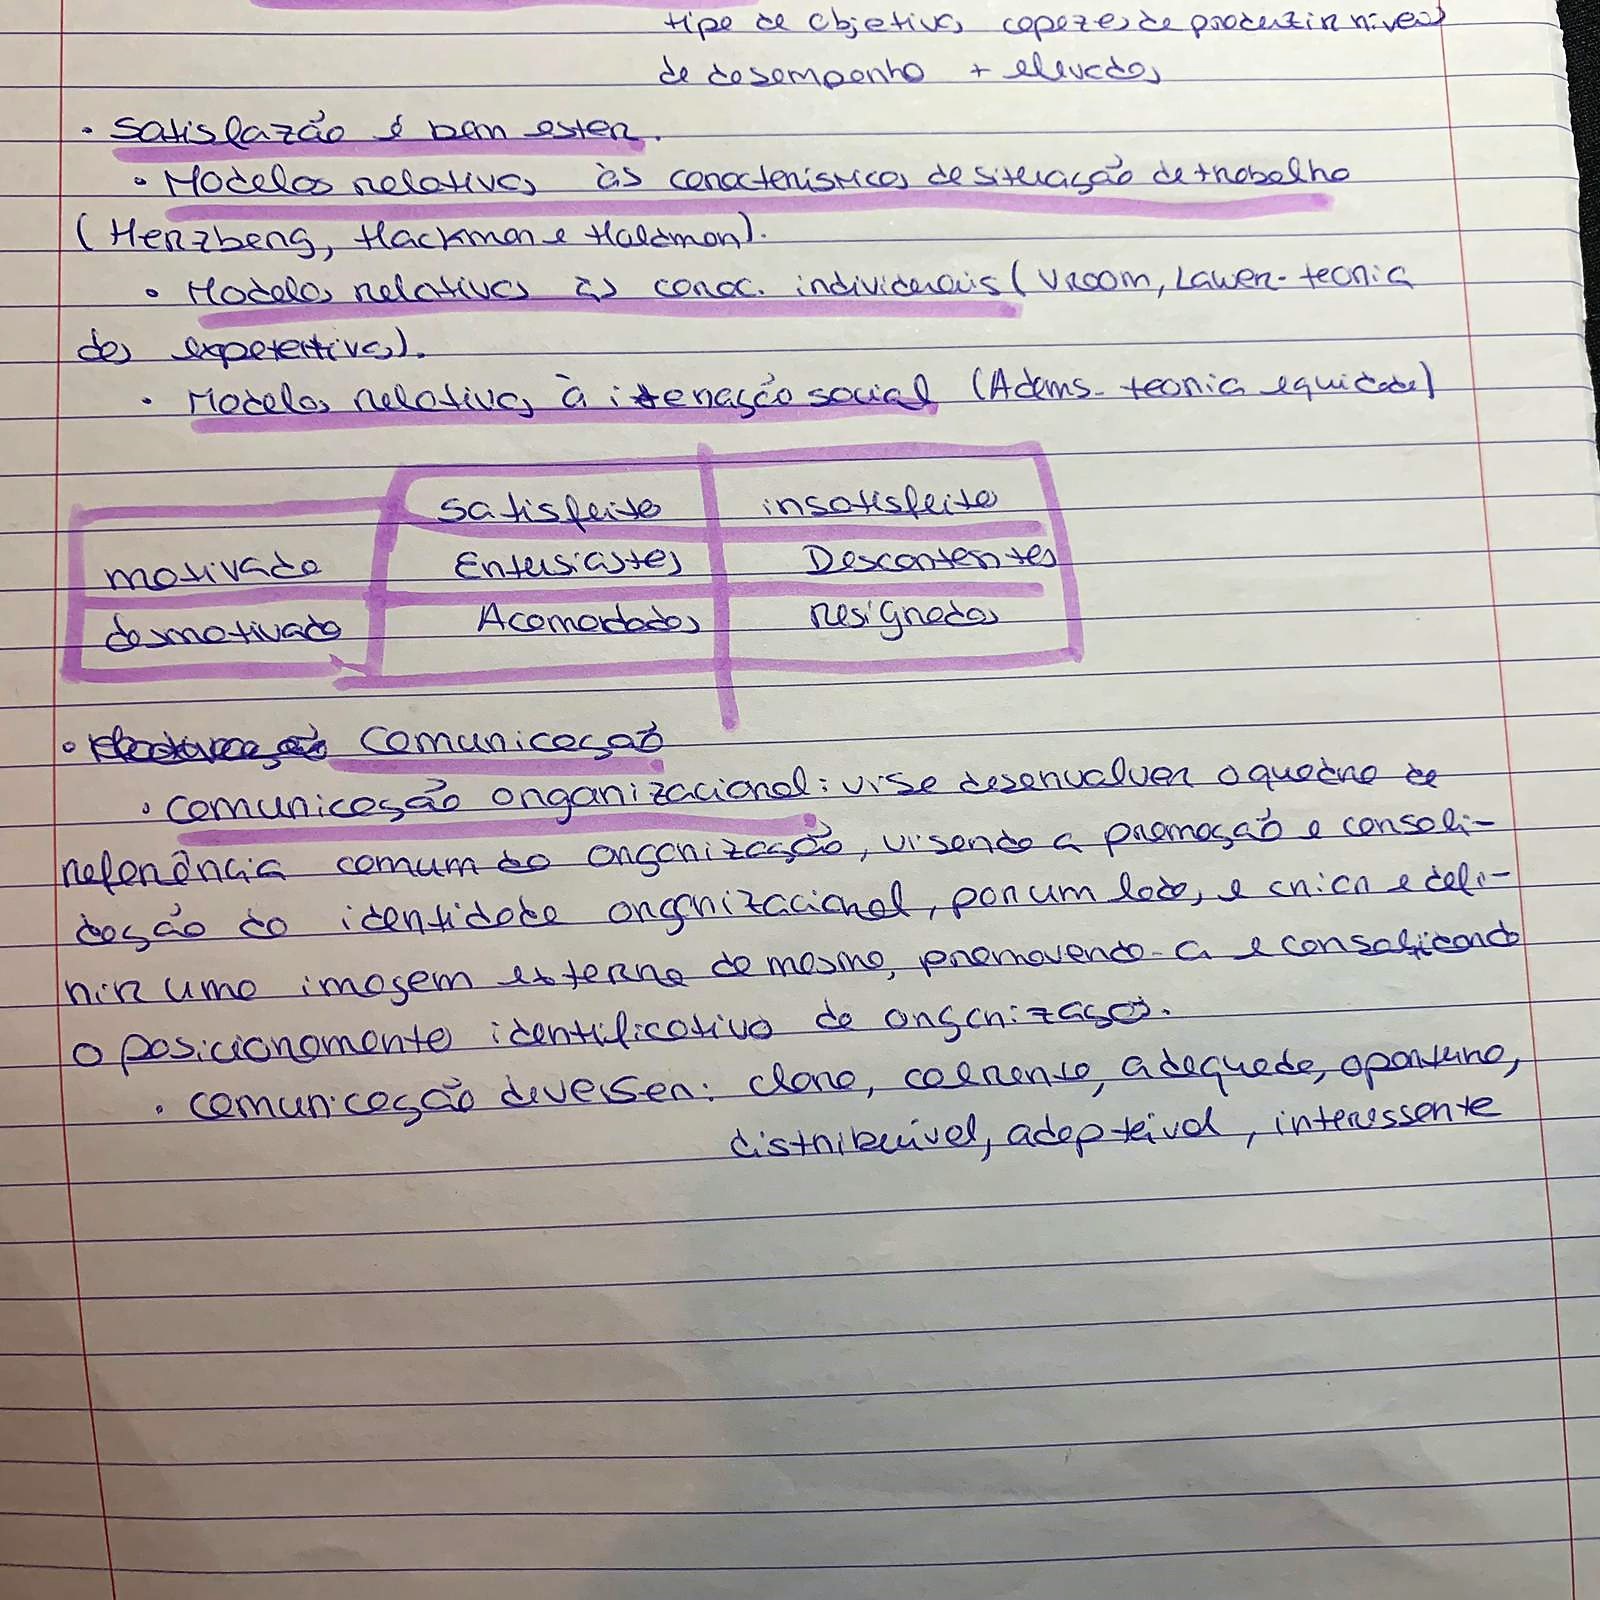 tipo de objetivos capazes de produzir níveis
de desempenho + elevados
• Satisfação é bem estar.
• Modelos relativos às características de situação de trabalho
(Herzberg, Hackman e Haldman).
• Modelos relativos às carac. individuais (Vroom, Lawer - teoria
das expetativas).
• Modelos relativos à interação social (Adams - teoria equidade)
satisfeito insatisfeito
motivado Entusiastas Descontentes
desmotivado Acomodados resignados
• Comunicação
• comunicação organizacional: visa desenvolver o quadro de
referência comum da organização, visando a promoção e consoli-
dação da identidade organizacional, por um lado, e criar e defi-
nir uma imagem externa da mesma, promovendo-a e consolidando
o posicionamento identificativo da organização.
• comunicação deve ser: clara, coerente, adequada, oportuna,
distribuível, adaptável, interessante